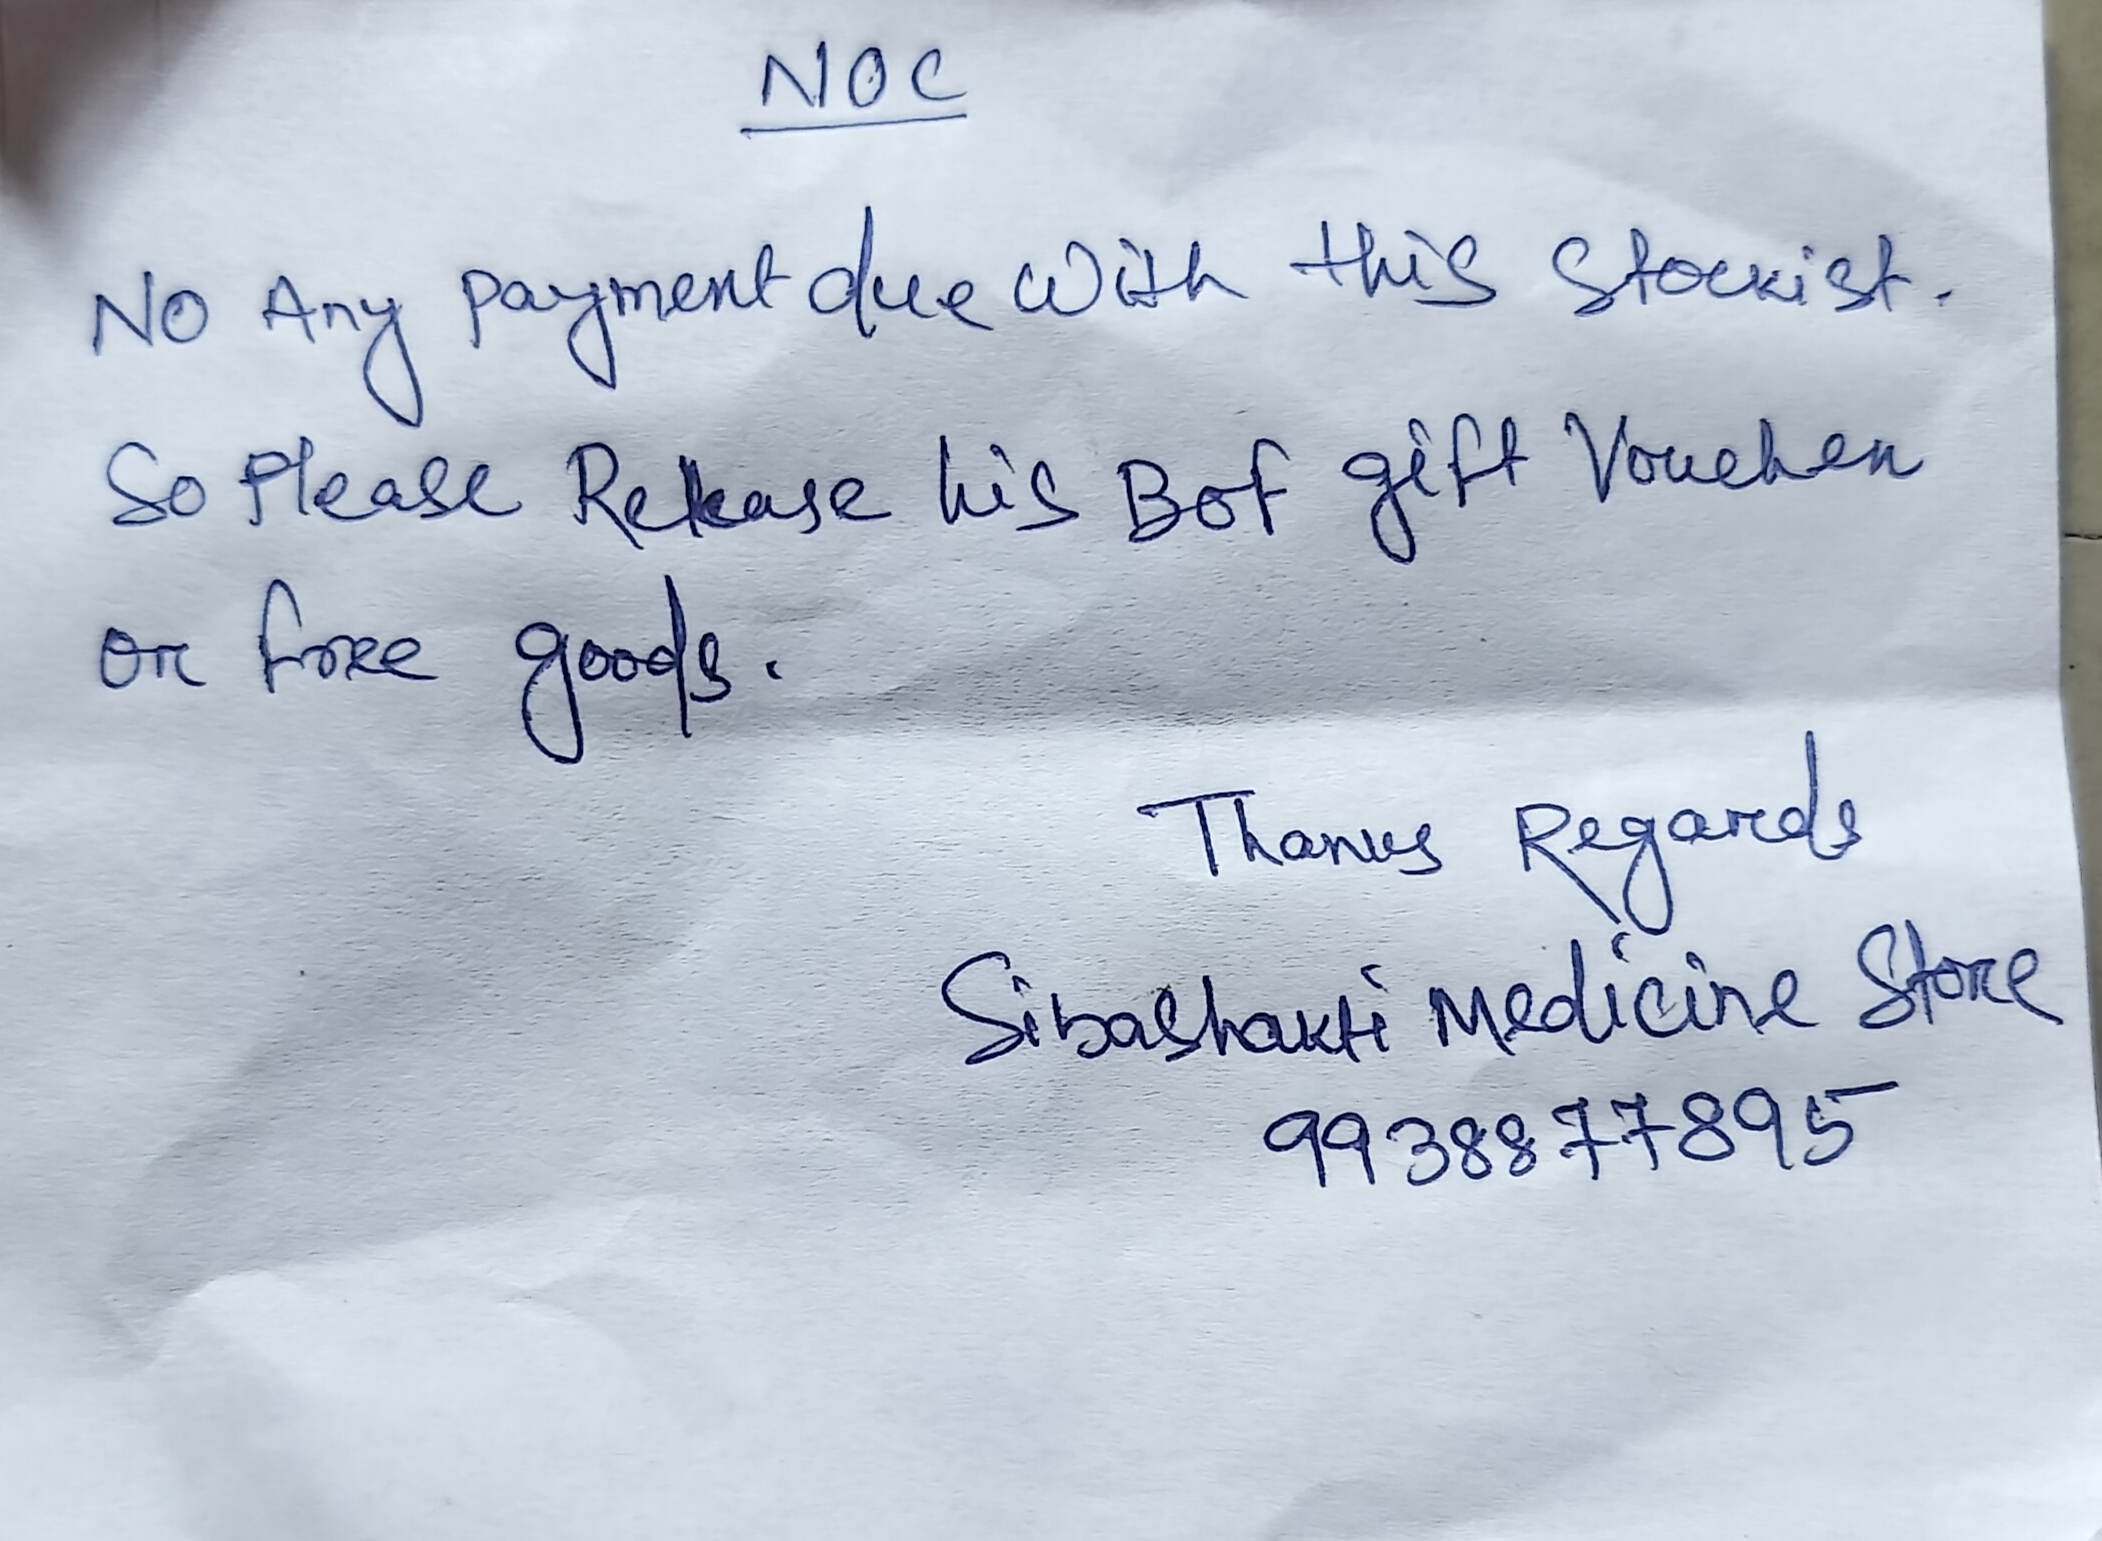 NOC
No Any payment due With this Stockist.
So Please Release his Bof gift Voucher
or free goods.
Thanks Regards
Sibashakti Medicine Store
9938877895